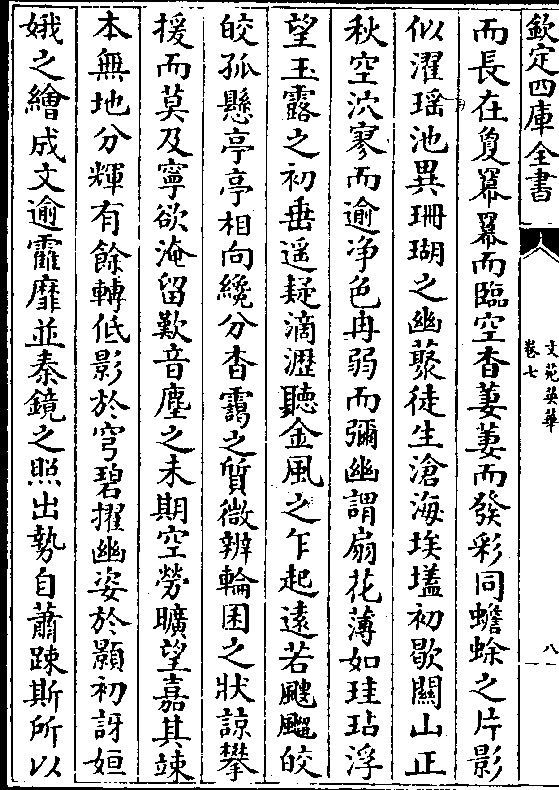 欽定四庫全書
文苑英華
卷七
八
而長在敻羃羃而臨空杳萋萋而發彩同蟾蜍之片影
似濯瑶池異珊瑚之幽藂徒生滄海埃壒初歇關山正
秋空泬寥而逾净色冉弱而彌幽謂扇花薄如珪玷浮
望玉露之初垂遥疑滴瀝聽金風之乍起遠若颼飀皎
皎孤懸亭亭相向纔分杳靄之質微辨輪囷之狀諒攀
援而莫及寧欲淹留歎音塵之未期空勞曠望嘉其竦
本無地分輝有餘轉低影於穹碧擢幽姿於顥初訝姮
娥之繪成文逾靃靡並秦鏡之照出勢自蕭踈斯所以